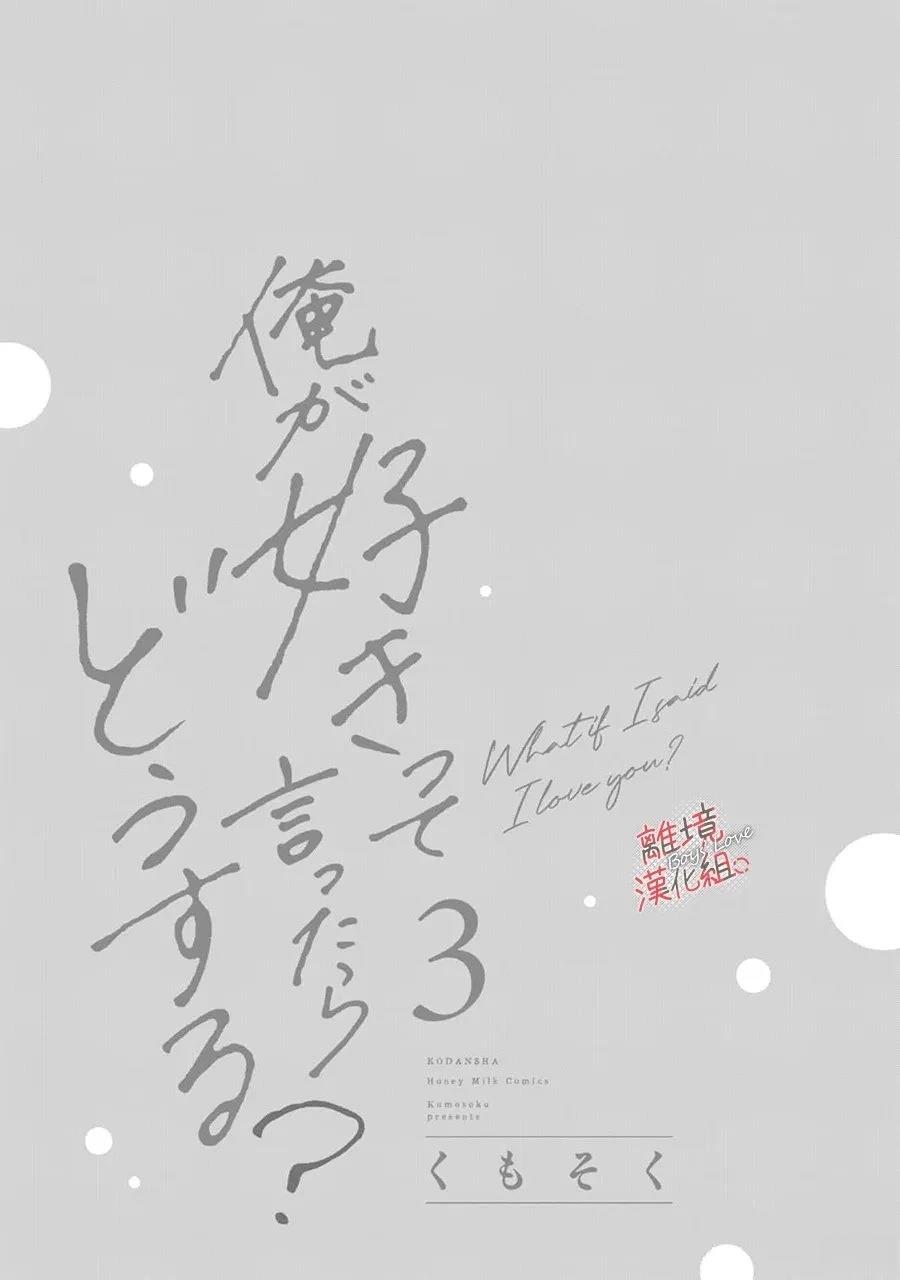 俺が好きって
言ったら
どうする?
3
What if I said
I love you?
離境
Boys Love
漢化組
KODANSHA
Honey Milk Comics
Kumosoku
presents
くもそく